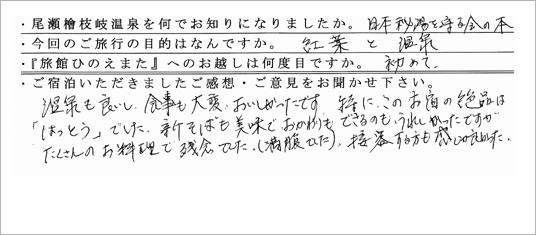 ・尾瀬檜枝岐温泉を何でお知りになりましたか。 日本秘湯を守る会の本
・今回のご旅行の目的はなんですか。 紅葉と温泉
・『旅館ひのえまた』へのお越しは何度目ですか。 初めて.
・ご宿泊いただきましたご感想・ご意見をお聞かせ下さい。
温泉も良いし、食事も大変、おいしかったです。特に、このお宿の絶品は
「はっとう」でした。新そばも美味でおかわりもできるのも、うれしかったですが
たくさんのお料理で残念でした。(満腹でした)、接客する方も感じが良かった.